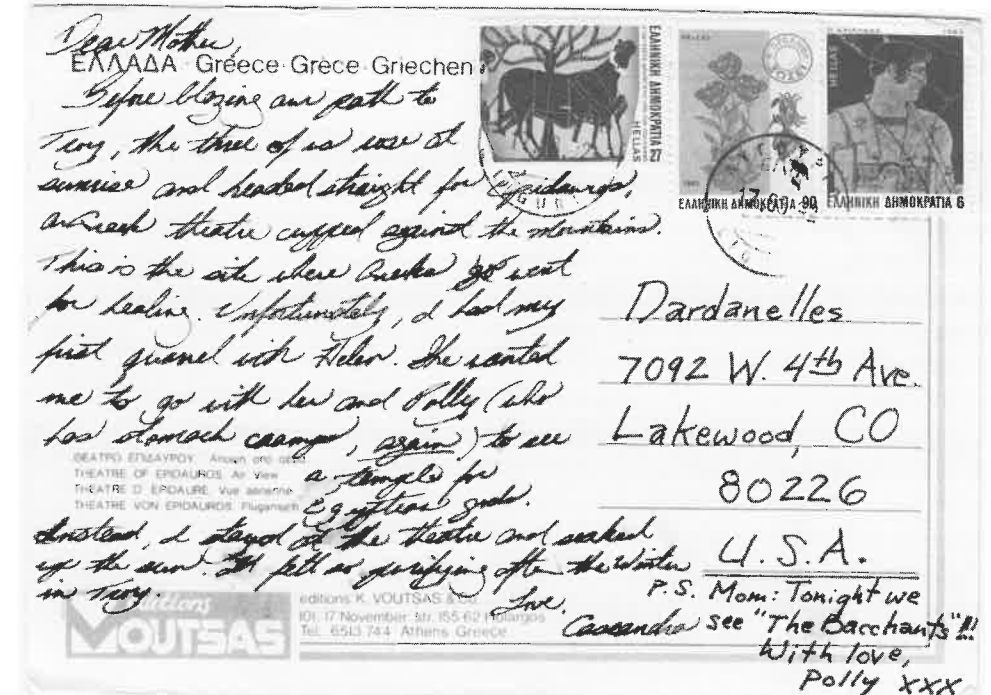 Dear Mother,
ΕΛΛΑΔΑ · Greece · Grèce · Griechen
Before blazing our path to
Troy, the three of us rose at
sunrise and headed straight for Epidauros,
a Greek theatre cupped against the mountains.
This is the site where Greeks went
for healing. Unfortunately, I had my
first quarrel with Helen. She wanted
me to go with her and Polly (who
has stomach cramps, again) to see
a temple for
Egyptian gods.
Instead, I stayed at the theatre and soaked
up the sun. It felt so purifying after the Winter
in Troy.
Love,
Cassandra
ΘΕΑΤΡΟ ΕΠΙΔΑΥΡΟΥ. Αποψη από
THEATRE OF EPIDAUROS. Air View
THEATRE D' EPIDAURE. Vue aérienne
THEATRE VON EPIDAUROS.
editions
VOUTSAS
editions K. VOUTSAS
101, 17 November Str. 155 62 Holargos
Tel. 6513 744 Athens Greece
ΕΛΛΗΝΙΚΗ ΔΗΜΟΚΡΑΤΙΑ 27
HELLAS
HELLAS
ΕΛΛΗΝΙΚΗ ΔΗΜΟΚΡΑΤΙΑ 90
HELLAS
ΕΛΛΗΝΙΚΗ ΔΗΜΟΚΡΑΤΙΑ 6
Dardanelles
7092 W. 4th Ave.
Lakewood, CO
80226
U.S.A.
P.S. Mom: Tonight we
see "The Bacchants"!!
With love,
Polly xxx